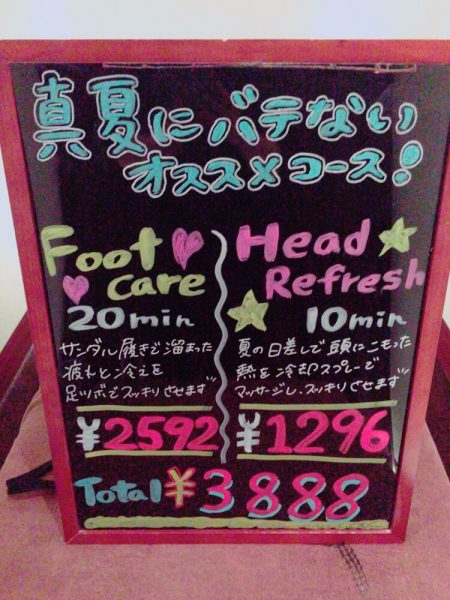 真夏にバテない
オススメコース!
Foot
Care
20min
サンダル履きで溜まった
疲れと冷えを
足ツボでスッキリさせます
¥2592
Head
Refresh
10min
夏の日差しで頭にこもった
熱を冷却スプレーで
マッサージし、スッキリさせます
¥1296
Total ¥3888